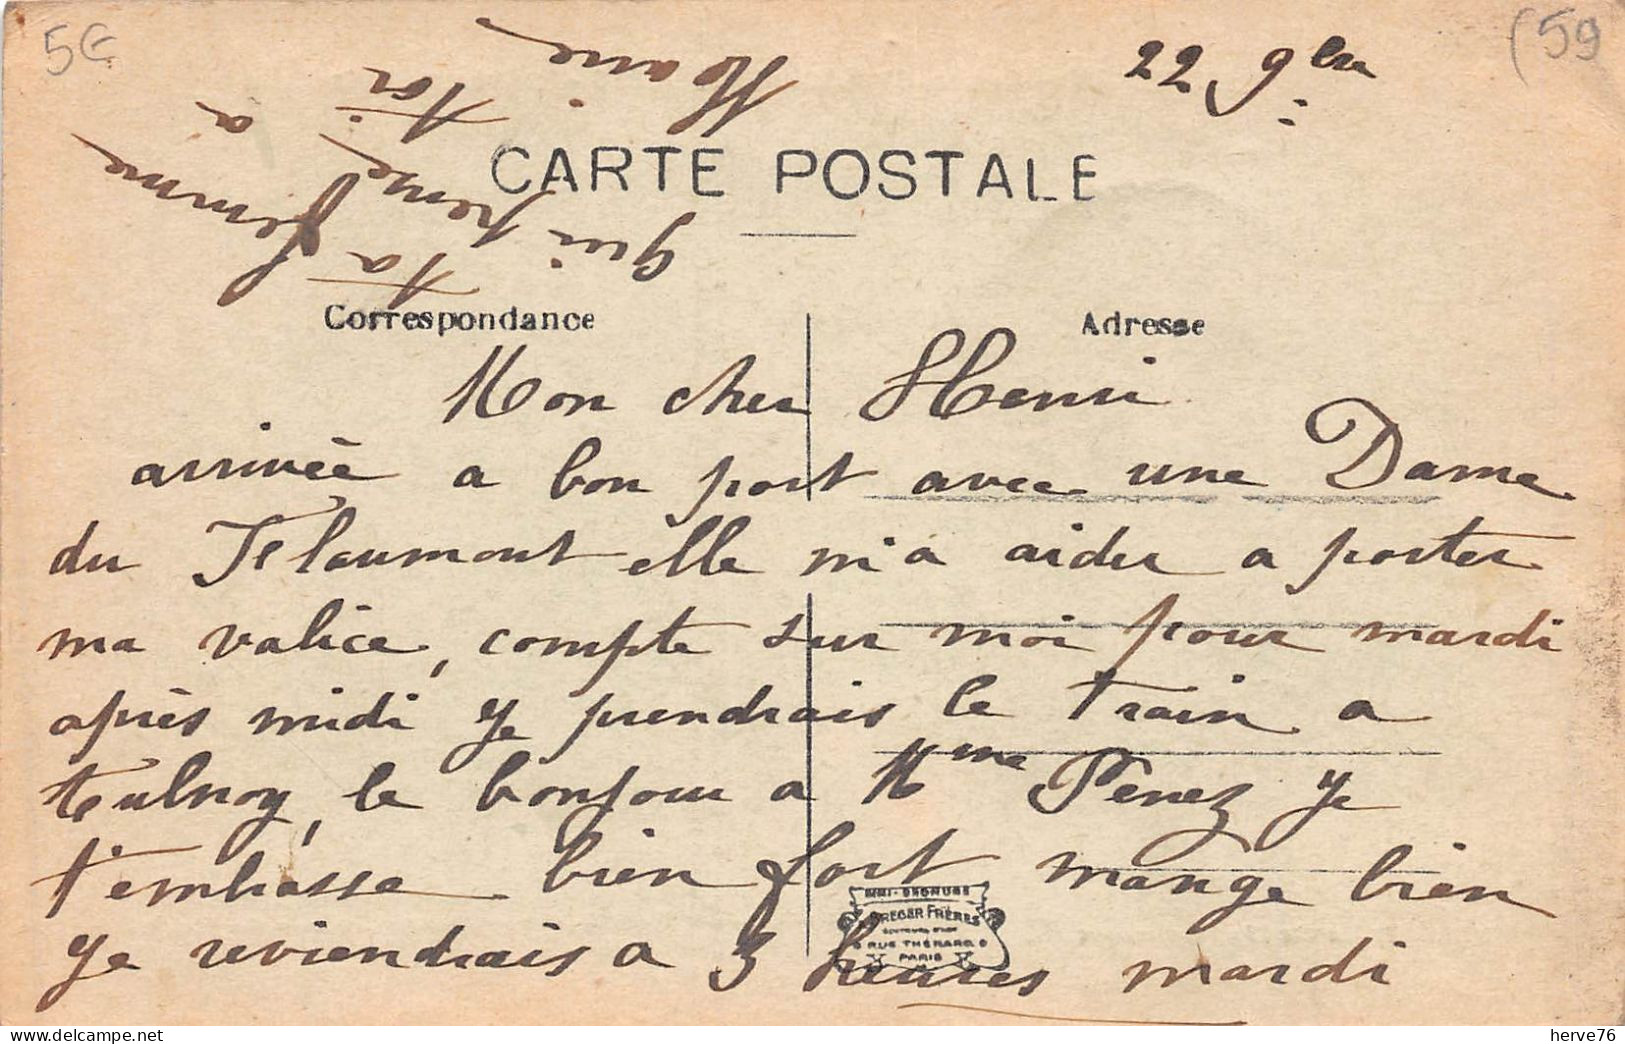 5€
(59
22 9bre
CARTE POSTALE
Correspondance
Adresse
Mon cher Henri
arrivée a bon port avec une Dame
du Flaumont elle m'a aider a porter
ma valice, compte sur moi pour mardi
après midi je prendrais le train a
aulnoy, le bonjour a Mme Penez je
t'embrasse bien fort mange bien
je reviendrais a 3 heures mardi
ta femme
qui pense a
toi
Marie
DREGER FRÈRES
RUE THÉNARD
PARIS
herve76